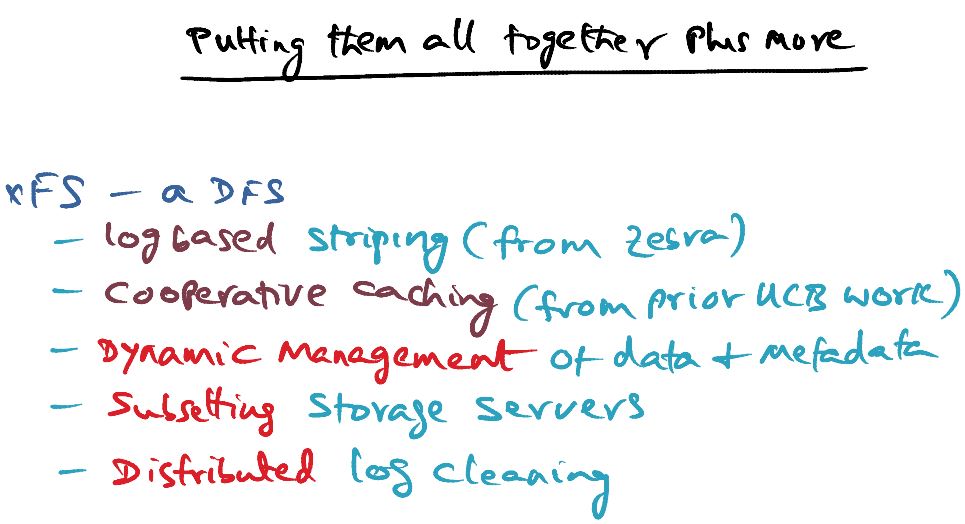 Putting them all together Plus More
xFS – a DFS
– log based striping (from Zebra)
– Cooperative caching (from prior UCB work)
– Dynamic Management of data + metadata
– Subsetting storage servers
– Distributed log cleaning